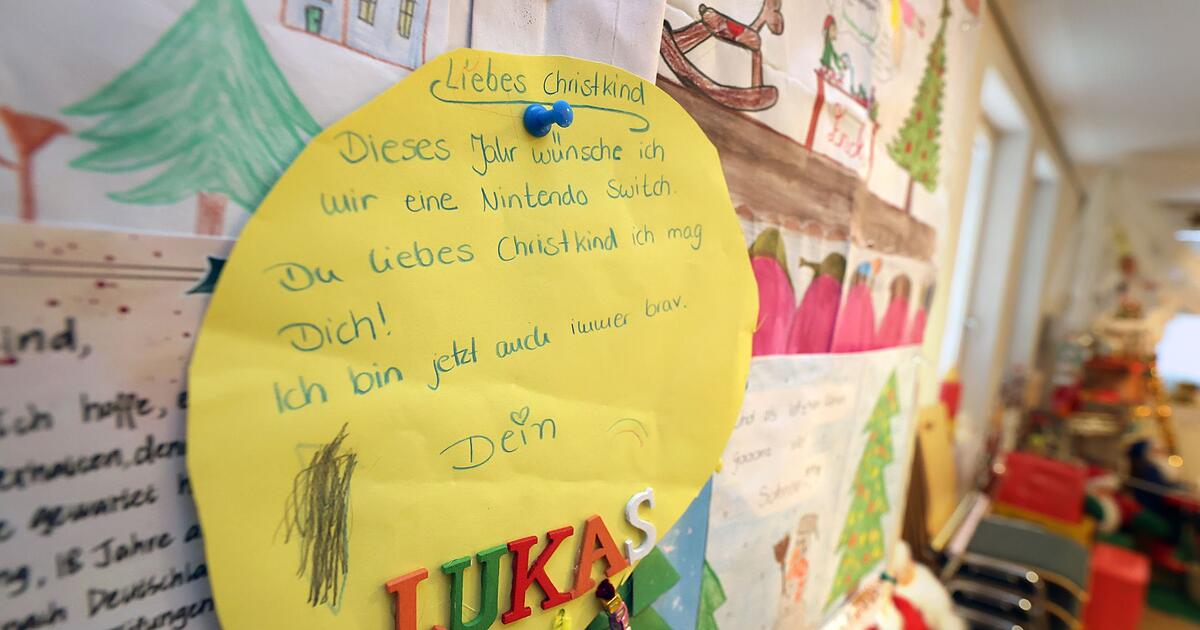 Liebes Christkind
Dieses Jahr wünsche ich
mir eine Nintendo Switch.
Du liebes Christkind ich mag
Dich!
Ich bin jetzt auch immer brav.
Dein
LUKAS
ind,
Ich hoffe,
gewartet
18 Jahre
nach Deutschla